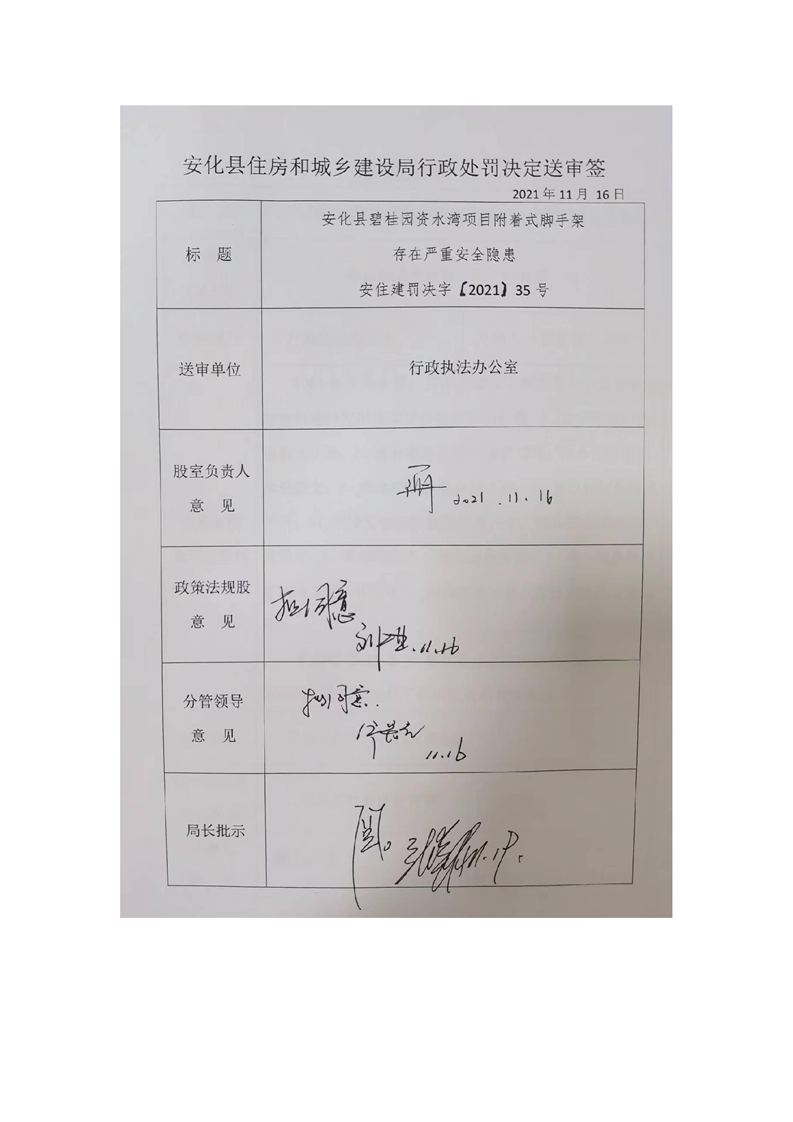 安化县住房和城乡建设局行政处罚决定送审签
2021年11月 16日
标 题
安化县碧桂园资水湾项目附着式脚手架
存在严重安全隐患
安住建罚决字【2021】35号
送审单位
行政执法办公室
股室负责人
意 见
2021.11.16
政策法规股
意 见
拟同意
11.16
分管领导
意 见
拟同意.
11.16
局长批示